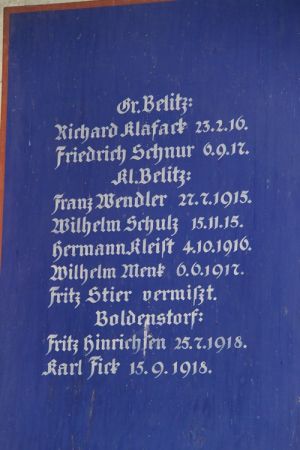 Gr. Belitz:
Richard Klafack 23.2.16.
Friedrich Schnur 6.9.17.
Kl. Belitz:
Franz Wendler 27.7.1915.
Wilhelm Schulz 15.11.15.
Hermann Kleist 4.10.1916.
Wilhelm Menk 6.6.1917.
Fritz Stier vermißt.
Boldenstorf:
Fritz Hinrichsen 25.7.1918.
Karl Fick 15.9.1918.